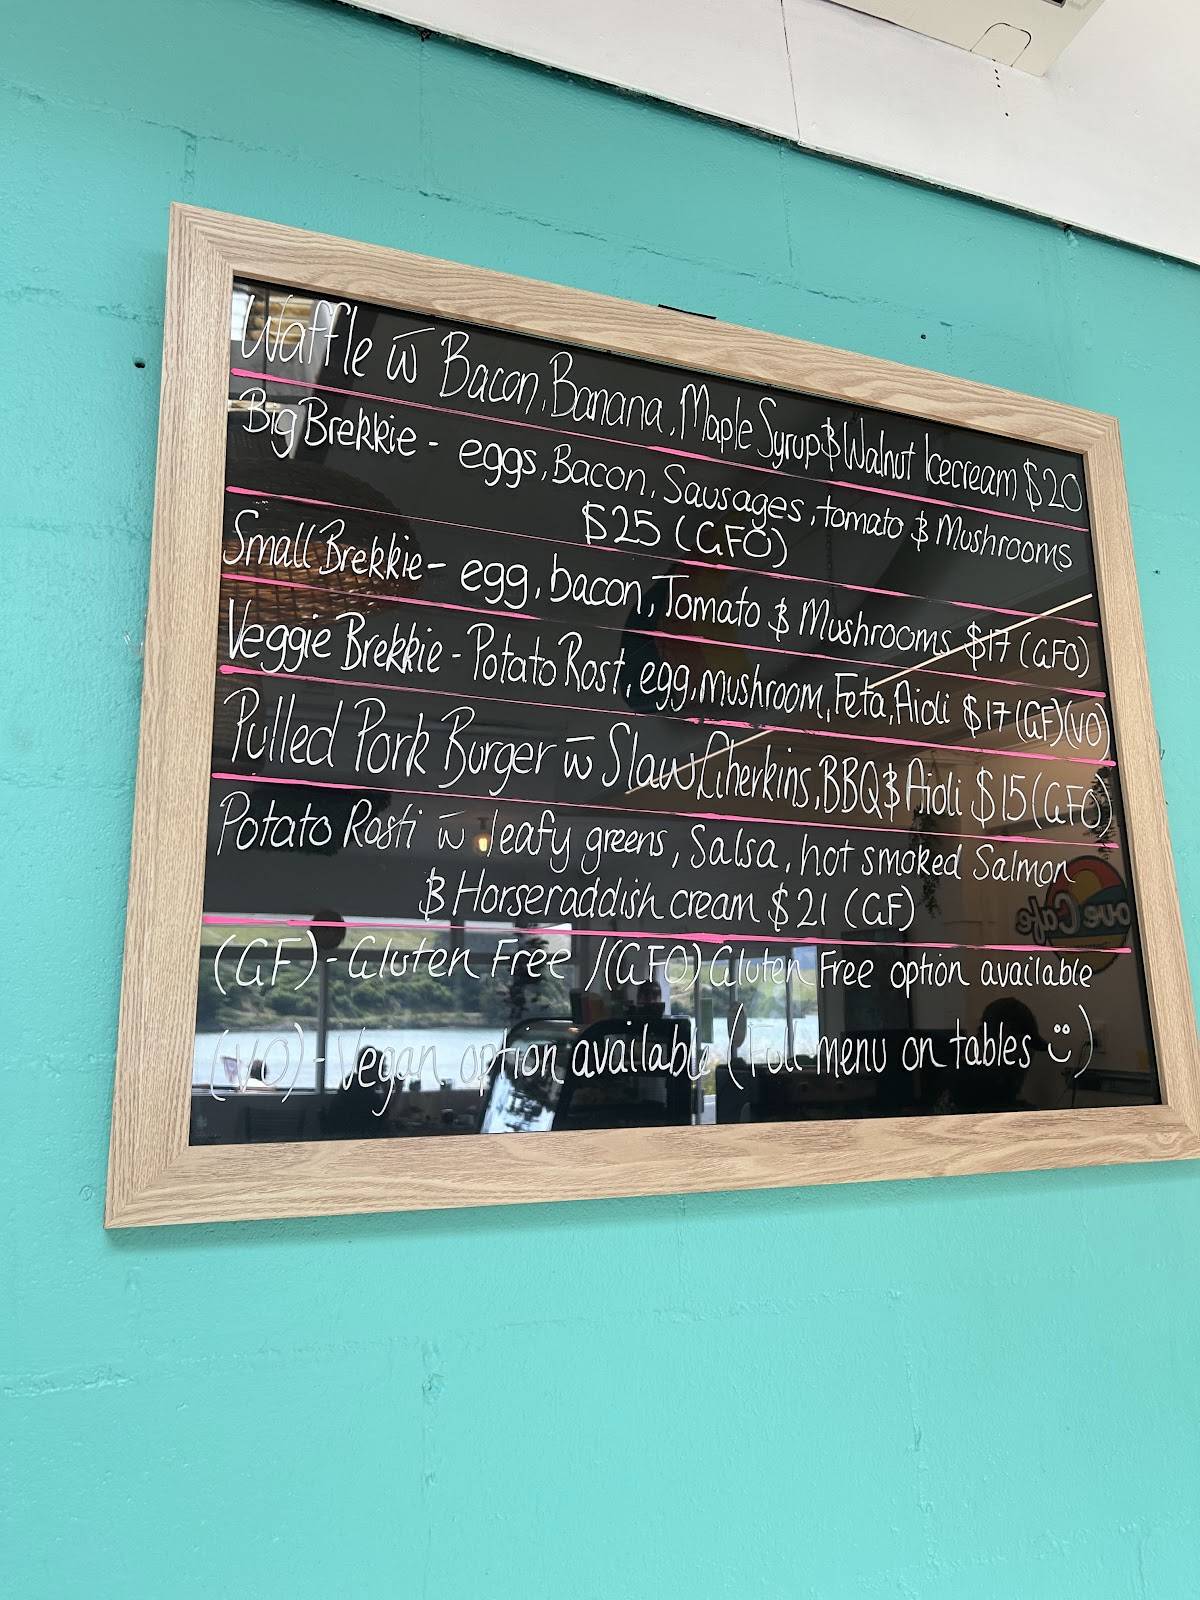 Waffle w̄ Bacon, Banana, Maple Syrup & Walnut Icecream $20
Big Brekkie - eggs, Bacon, Sausages, tomato & Mushrooms
$25 (GFO)
Small Brekkie - egg, bacon, Tomato & Mushrooms $17 (GFO)
Veggie Brekkie - Potato Rost, egg, mushroom, Feta, Aioli $17 (GF)(VO)
Pulled Pork Burger w̄ Slaw, Gherkins, BBQ & Aioli $15 (GFO)
Potato Rosti w̄ leafy greens, Salsa, hot smoked Salmon
& Horseraddish cream $21 (GF)
(GF) - Gluten Free /(GFO) Gluten Free option available
(VO) - Vegan option available (Full menu on tables ü)
ove Cafe